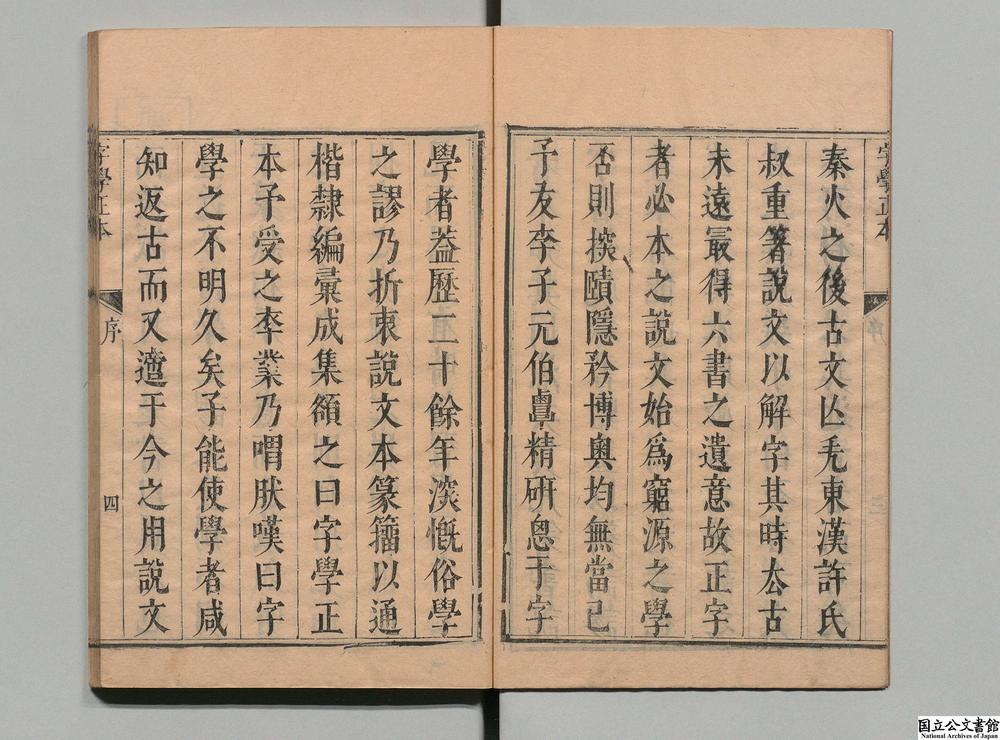 秦火之後古文亾矣東漢許氏
叔重著說文以解字其時厺古
未遠㝡得六書之遺意故正字
者必本之說文始爲窮源之學
否則探賾隱矜博奧均無當已
予友李子元伯覃精研思于字
學者葢歷二十餘年深慨俗學
之謬乃折衷說文本篆籀以通
楷隸編彙成集頟之曰字學正
本予受之卒業乃喟肰嘆曰字
學之不明久矣子能使學者咸
知返古而又適于今之用說文
字學正本
序
四
字學正本
序
三
国立公文書館
National Archives of Japan